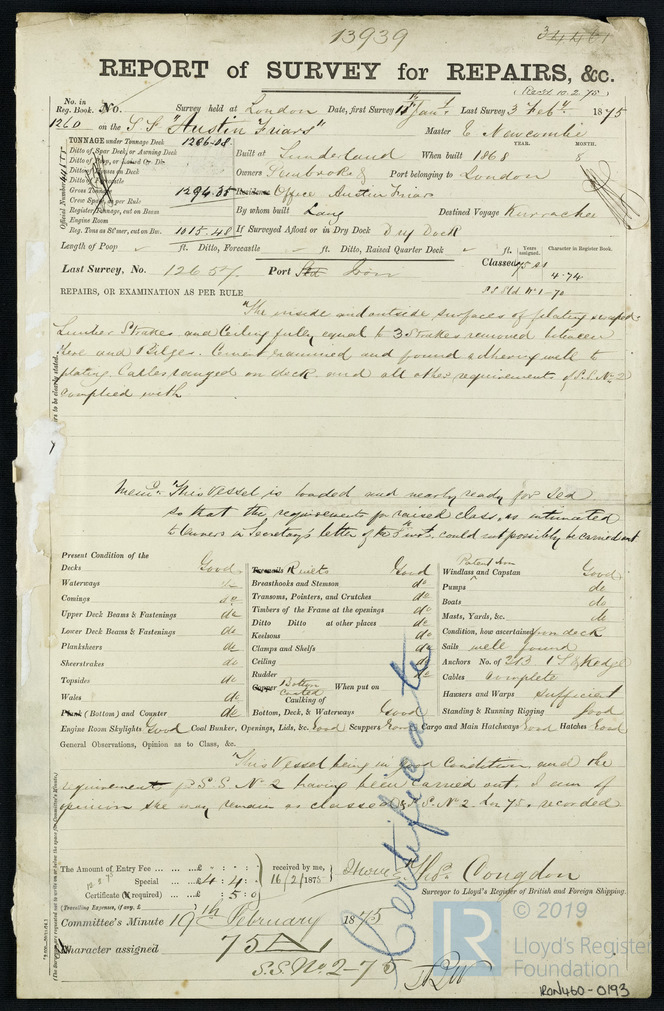 13939
34461
REPORT of SURVEY for REPAIRS, &c.
(Recd 10.2.75)
No. in Reg. Book. No. Survey held at London Date, first Survey 15th Jany. Last Survey 3 Feby. 1875
1260 on the S S "Austin Friars" Master E Newcombe
TONNAGE under Tonnage Deck 1286.08
Ditto of Spar Deck, or Awning Deck
Built at Sunderland When built 1868 YEAR. MONTH. 8
Gross Tonnage 1294.35
Owners Port belonging to London
Office Austin Friars
Register Tonnage, cut on Beam
Engine Room
By whom built Laing Destined Voyage Kurrachee
Reg. Tons as Str., cut on Bm. 1015.48 If Surveyed Afloat or in Dry Dock Dry Dock
Official Number
Length of Poop ft. Ditto, Forecastle ft. Ditto, Raised Quarter Deck ft.
Years assigned. Character in Register Book.
Last Survey, No. 12657 Port Iron Classed
4.74
REPAIRS, OR EXAMINATION AS PER RULE
"The inside and outside surfaces of plating scraped.
Limber Strakes and Ceiling fully equal to 3 Strakes removed between
Keel and Bilges. Cement examined and found adhering well to
plating. Cables ranged on deck and all other requirements of S.S. No. 2
complied with
Memo. This Vessel is loaded and nearly ready for Sea
so that the requirements for raised class, as intimated
to Owners in Secretary's letter of the 8th inst. could not possibly be carried out
Present Condition of the
Decks Good
Waterways do
Comings do
Upper Deck Beams & Fastenings do
Lower Deck Beams & Fastenings do
Planksheers do
Sheerstrakes do
Topsides do
Wales do
Plank (Bottom) and Counter do
Treenails Rivets Good
Breasthooks and Stemson do
Transoms, Pointers, and Crutches do
Timbers of the Frame at the openings do
Ditto Ditto at other places do
Keelsons do
Clamps and Shelfs do
Ceiling do
Rudder do
Copper Bottom coated When put on
Caulking of
Bottom, Deck, & Waterways Good
Patent Iron
Windlass and Capstan Good
Pumps do
Boats do
Masts, Yards, &c. do
Condition, how ascertained from deck
Sails well found
Anchors No. of 2B 1S 1 Kedge
Cables complete
Hawsers and Warps sufficient
Standing & Running Rigging good
Engine Room Skylights Good Coal Bunker, Openings, Lids, &c. Good Scuppers Good Cargo and Main Hatchways Good Hatches Good
General Observations, Opinion as to Class, &c.
This Vessel being in good Condition and the
requirements of S.S. No 2 having been carried out. I am of
opinion she may remain as classed & S.S. No 2 Lon 75. recorded
Certificate
The Amount of Entry Fee £ : : received by me,
Special £4 : 4 : 16/2/1875
Certificate (if required) : 5 : 0
(Travelling Expenses, if any, £ )
Thos. Congdon
Surveyor to Lloyd's Register of British and Foreign Shipping.
Committee's Minute 19th February 1875
Character assigned 75
S.S. No 2-75
© 2019
LR
Lloyd's Register
Foundation
IRON460-0193